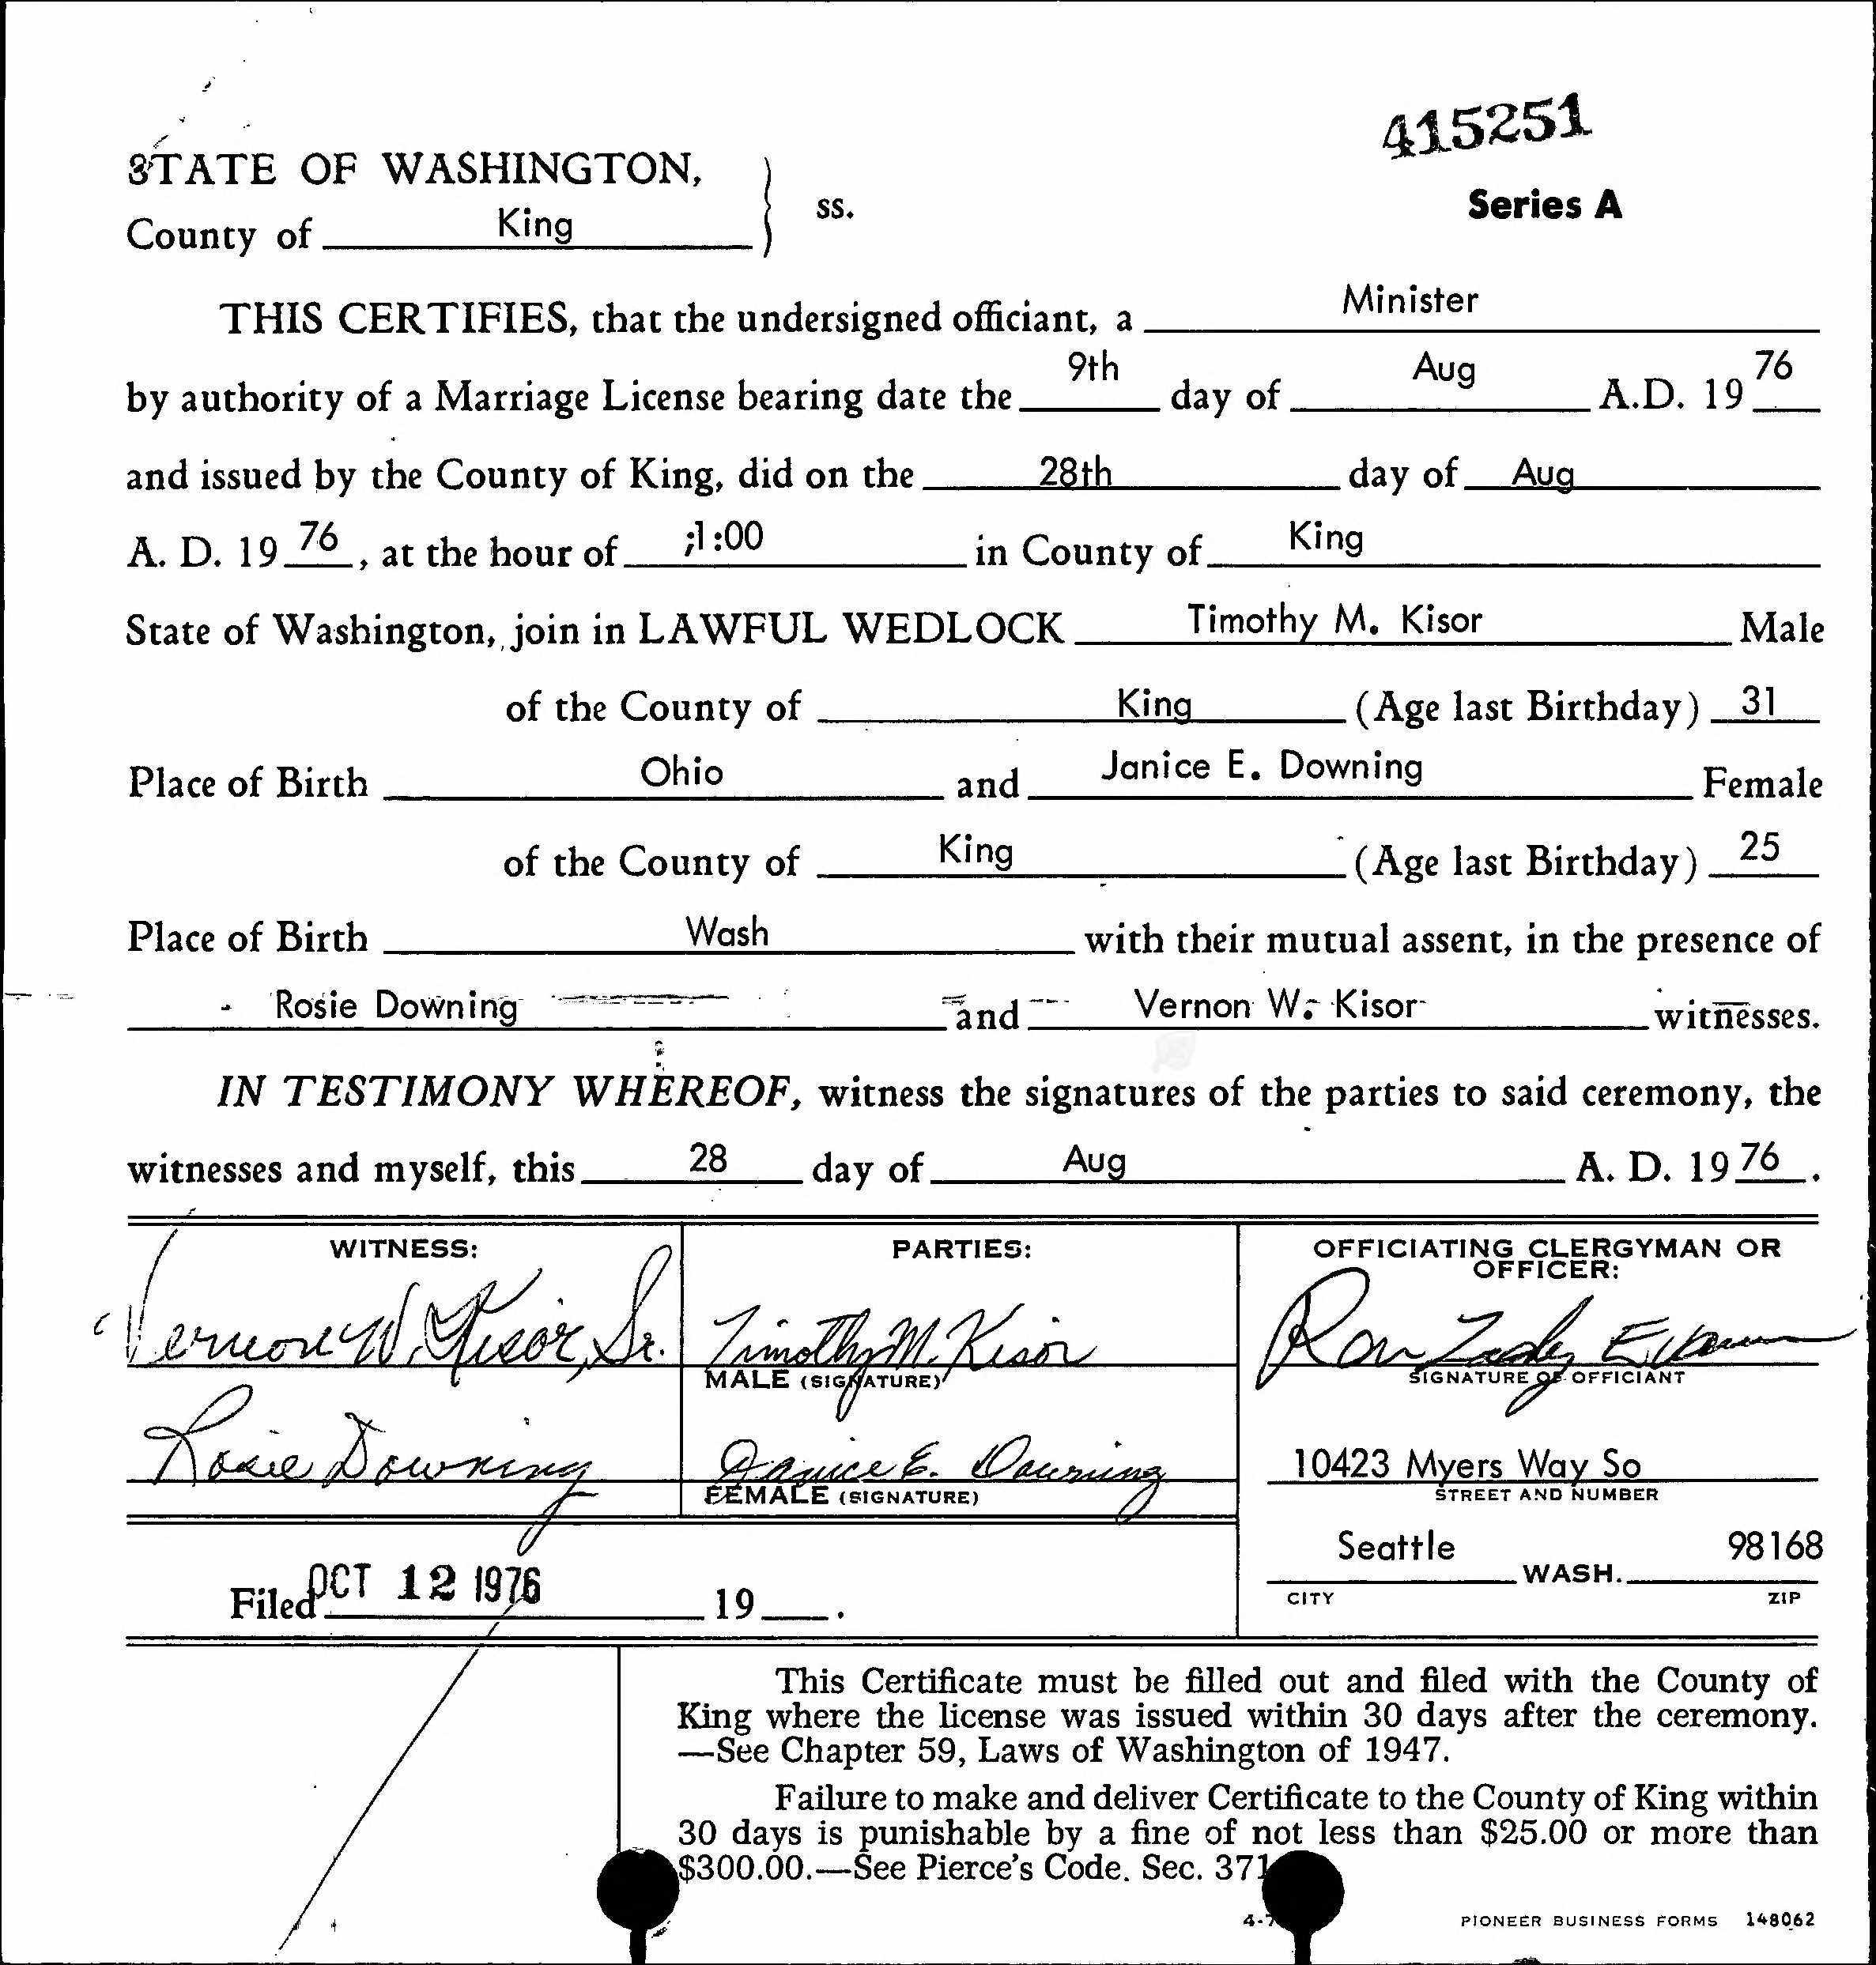 415251
STATE OF WASHINGTON,
Series A
County of King ss.
THIS CERTIFIES, that the undersigned officiant, a Minister
by authority of a Marriage License bearing date the 9th day of Aug A.D. 19 76
and issued by the County of King, did on the 28th day of Aug
A. D. 19 76, at the hour of ;1:00 in County of King
State of Washington, join in LAWFUL WEDLOCK Timothy M. Kisor Male
of the County of King (Age last Birthday) 31
Place of Birth Ohio and Janice E. Downing Female
of the County of King (Age last Birthday) 25
Place of Birth Wash with their mutual assent, in the presence of
Rosie Downing and Vernon W. Kisor witnesses.
IN TESTIMONY WHEREOF, witness the signatures of the parties to said ceremony, the
witnesses and myself, this 28 day of Aug A. D. 19 76.
WITNESS:
Vernon W. Kisor, Sr.
Rosie Downing
PARTIES:
Timothy M. Kisor
MALE (SIGNATURE)
Janice E. Downing
FEMALE (SIGNATURE)
OFFICIATING CLERGYMAN OR
OFFICER:
Ron
SIGNATURE OF OFFICIANT
10423 Myers Way So
STREET AND NUMBER
Seattle WASH. 98168
CITY ZIP
Filed OCT 12 1976 19 .
This Certificate must be filled out and filed with the County of
King where the license was issued within 30 days after the ceremony.
—See Chapter 59, Laws of Washington of 1947.
Failure to make and deliver Certificate to the County of King within
30 days is punishable by a fine of not less than $25.00 or more than
$300.00.—See Pierce's Code. Sec. 371
4-7
PIONEER BUSINESS FORMS 148062